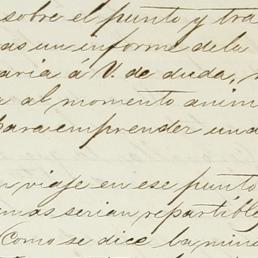 sobre el punto y tra
as un informe de la
aria á V. de duda,
al momento anim
para emprender una
viaje en ese punto
mas serian repartible
Como se dice la mina